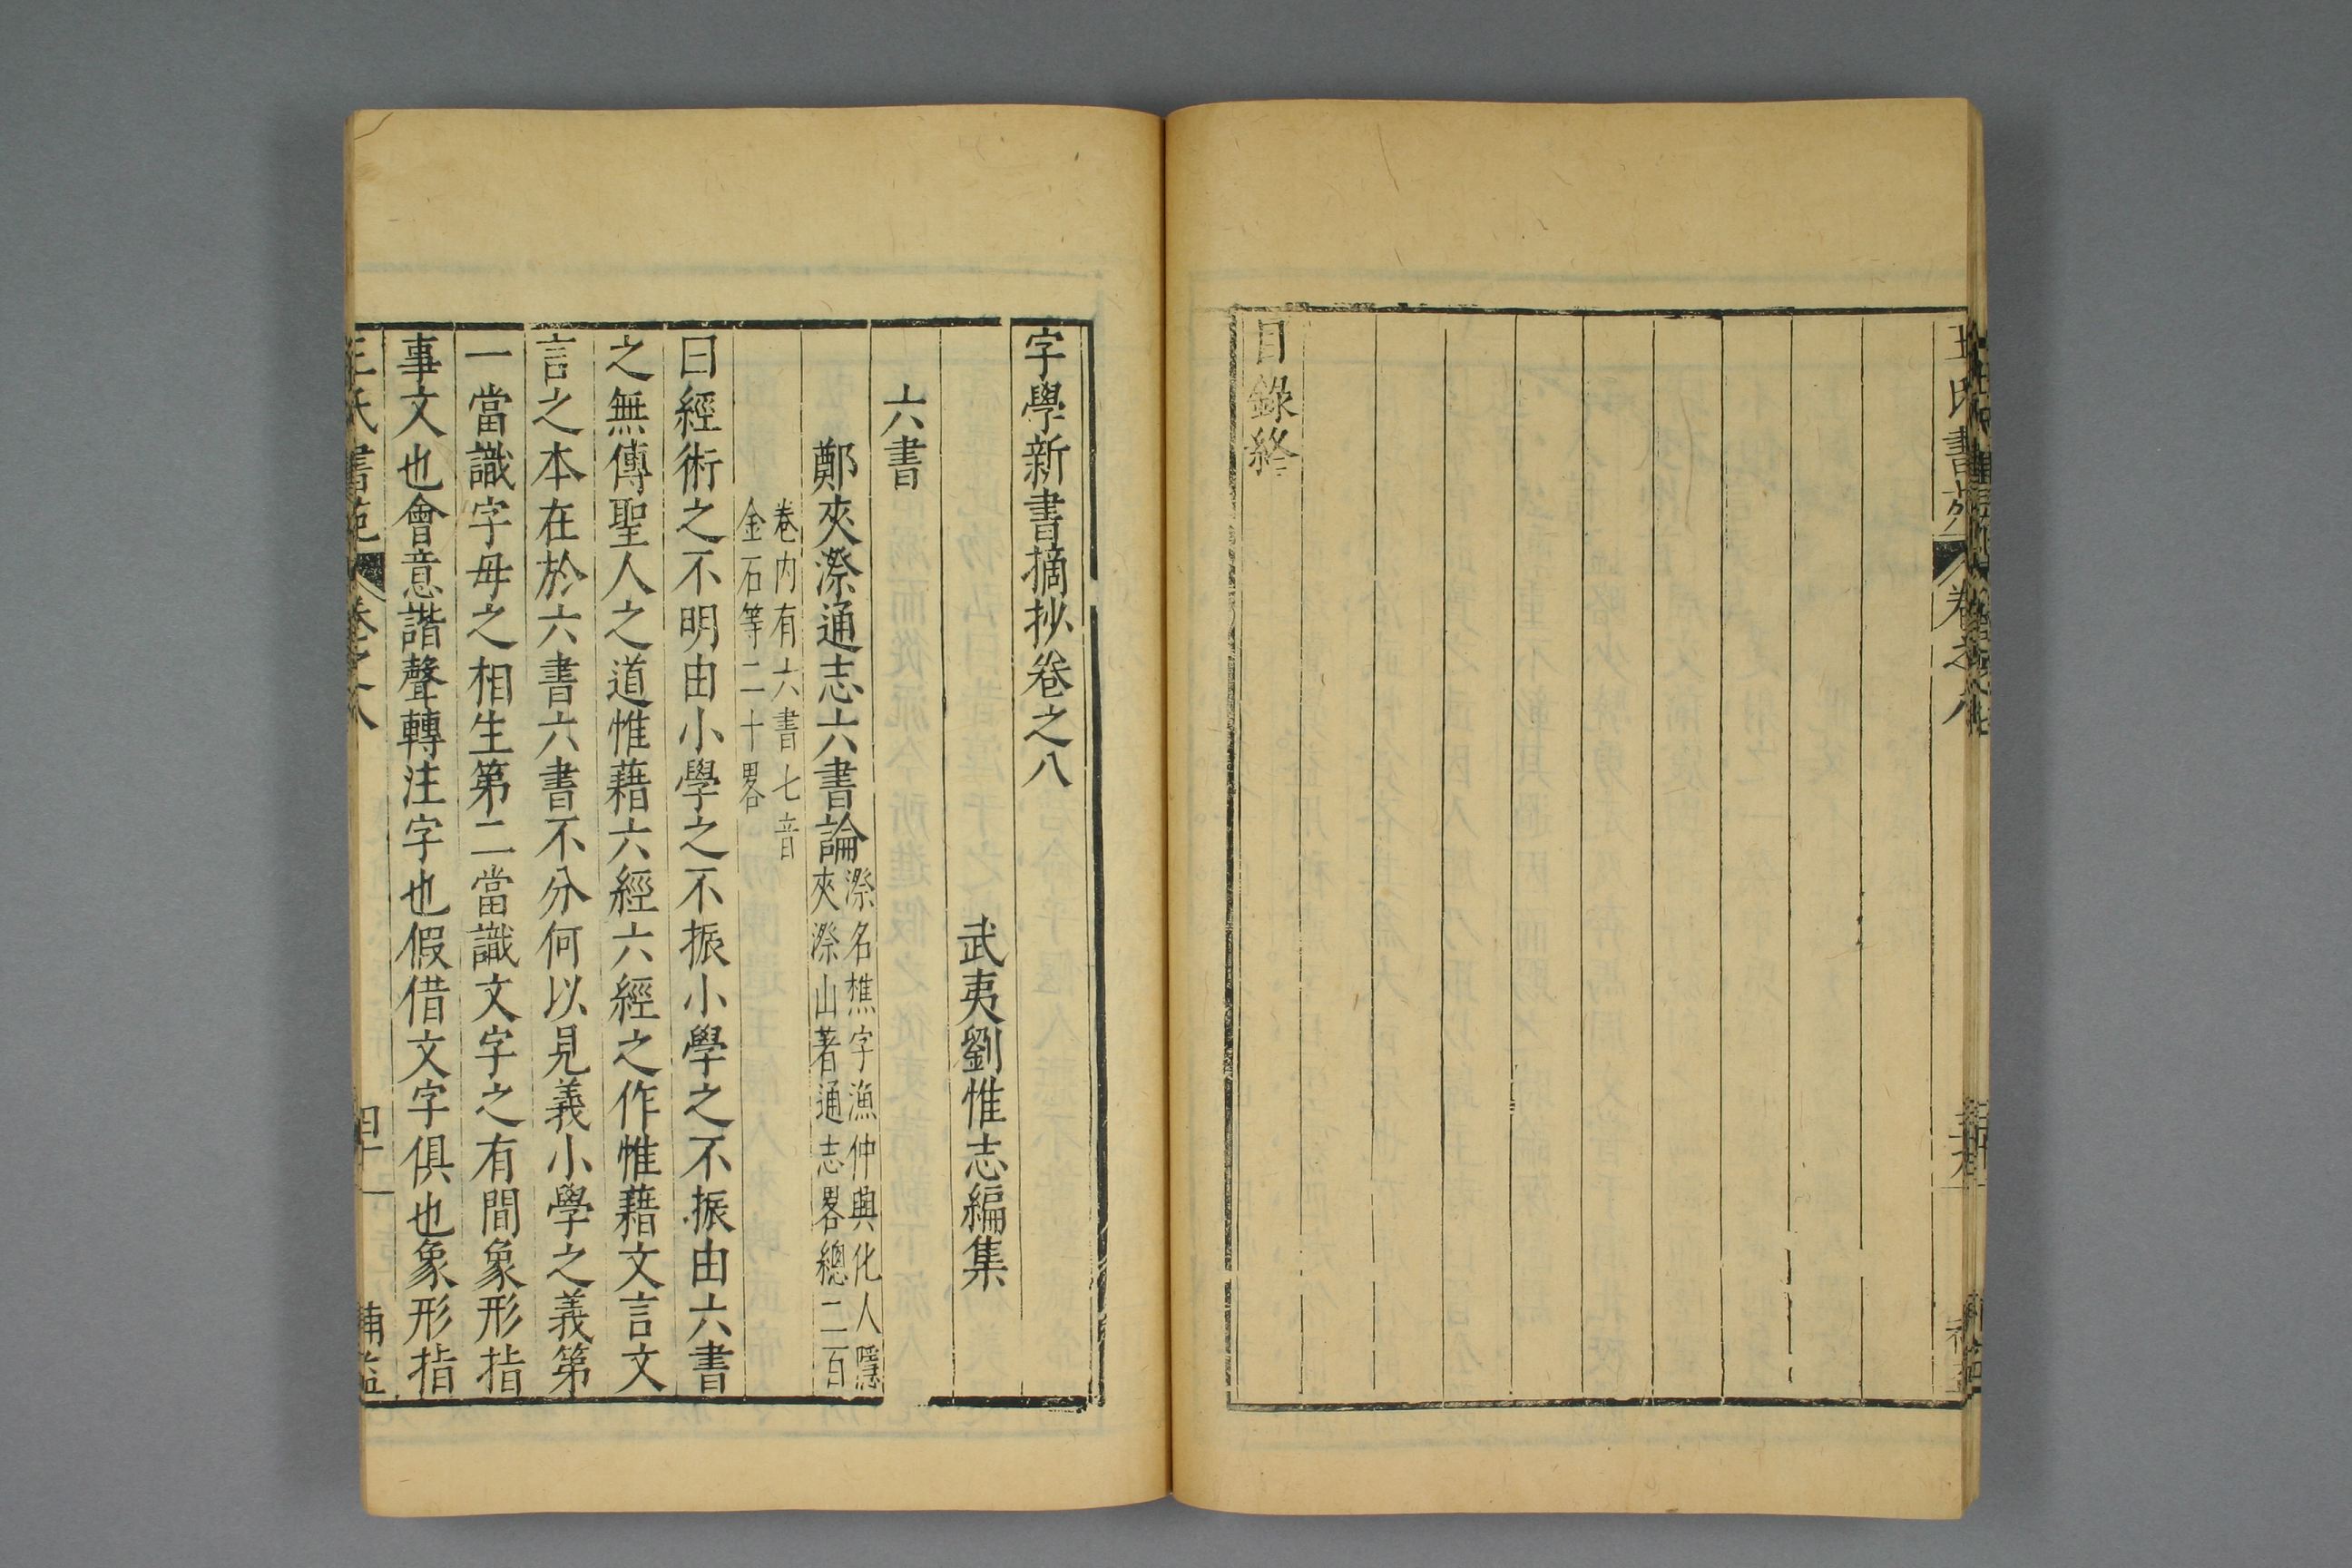 目錄終
字學新書摘抄卷之八
武夷劉惟志編集
六書
鄭夾漈通志六書論漈名樵字漁仲興化人隱
夾漈山著通志畧總二百
卷内有六書七音
金石等二十畧
曰經術之不明由小學之不振小學之不振由六書
之無傳聖人之道惟藉六經六經之作惟藉文言文
言之本在於六書六書不分何以見義小學之義第
一當識字母之相生第二當識文字之有間象形指
事文也會意諧聲轉注字也假借文字俱也象形指
王氏書苑 卷之八
補益